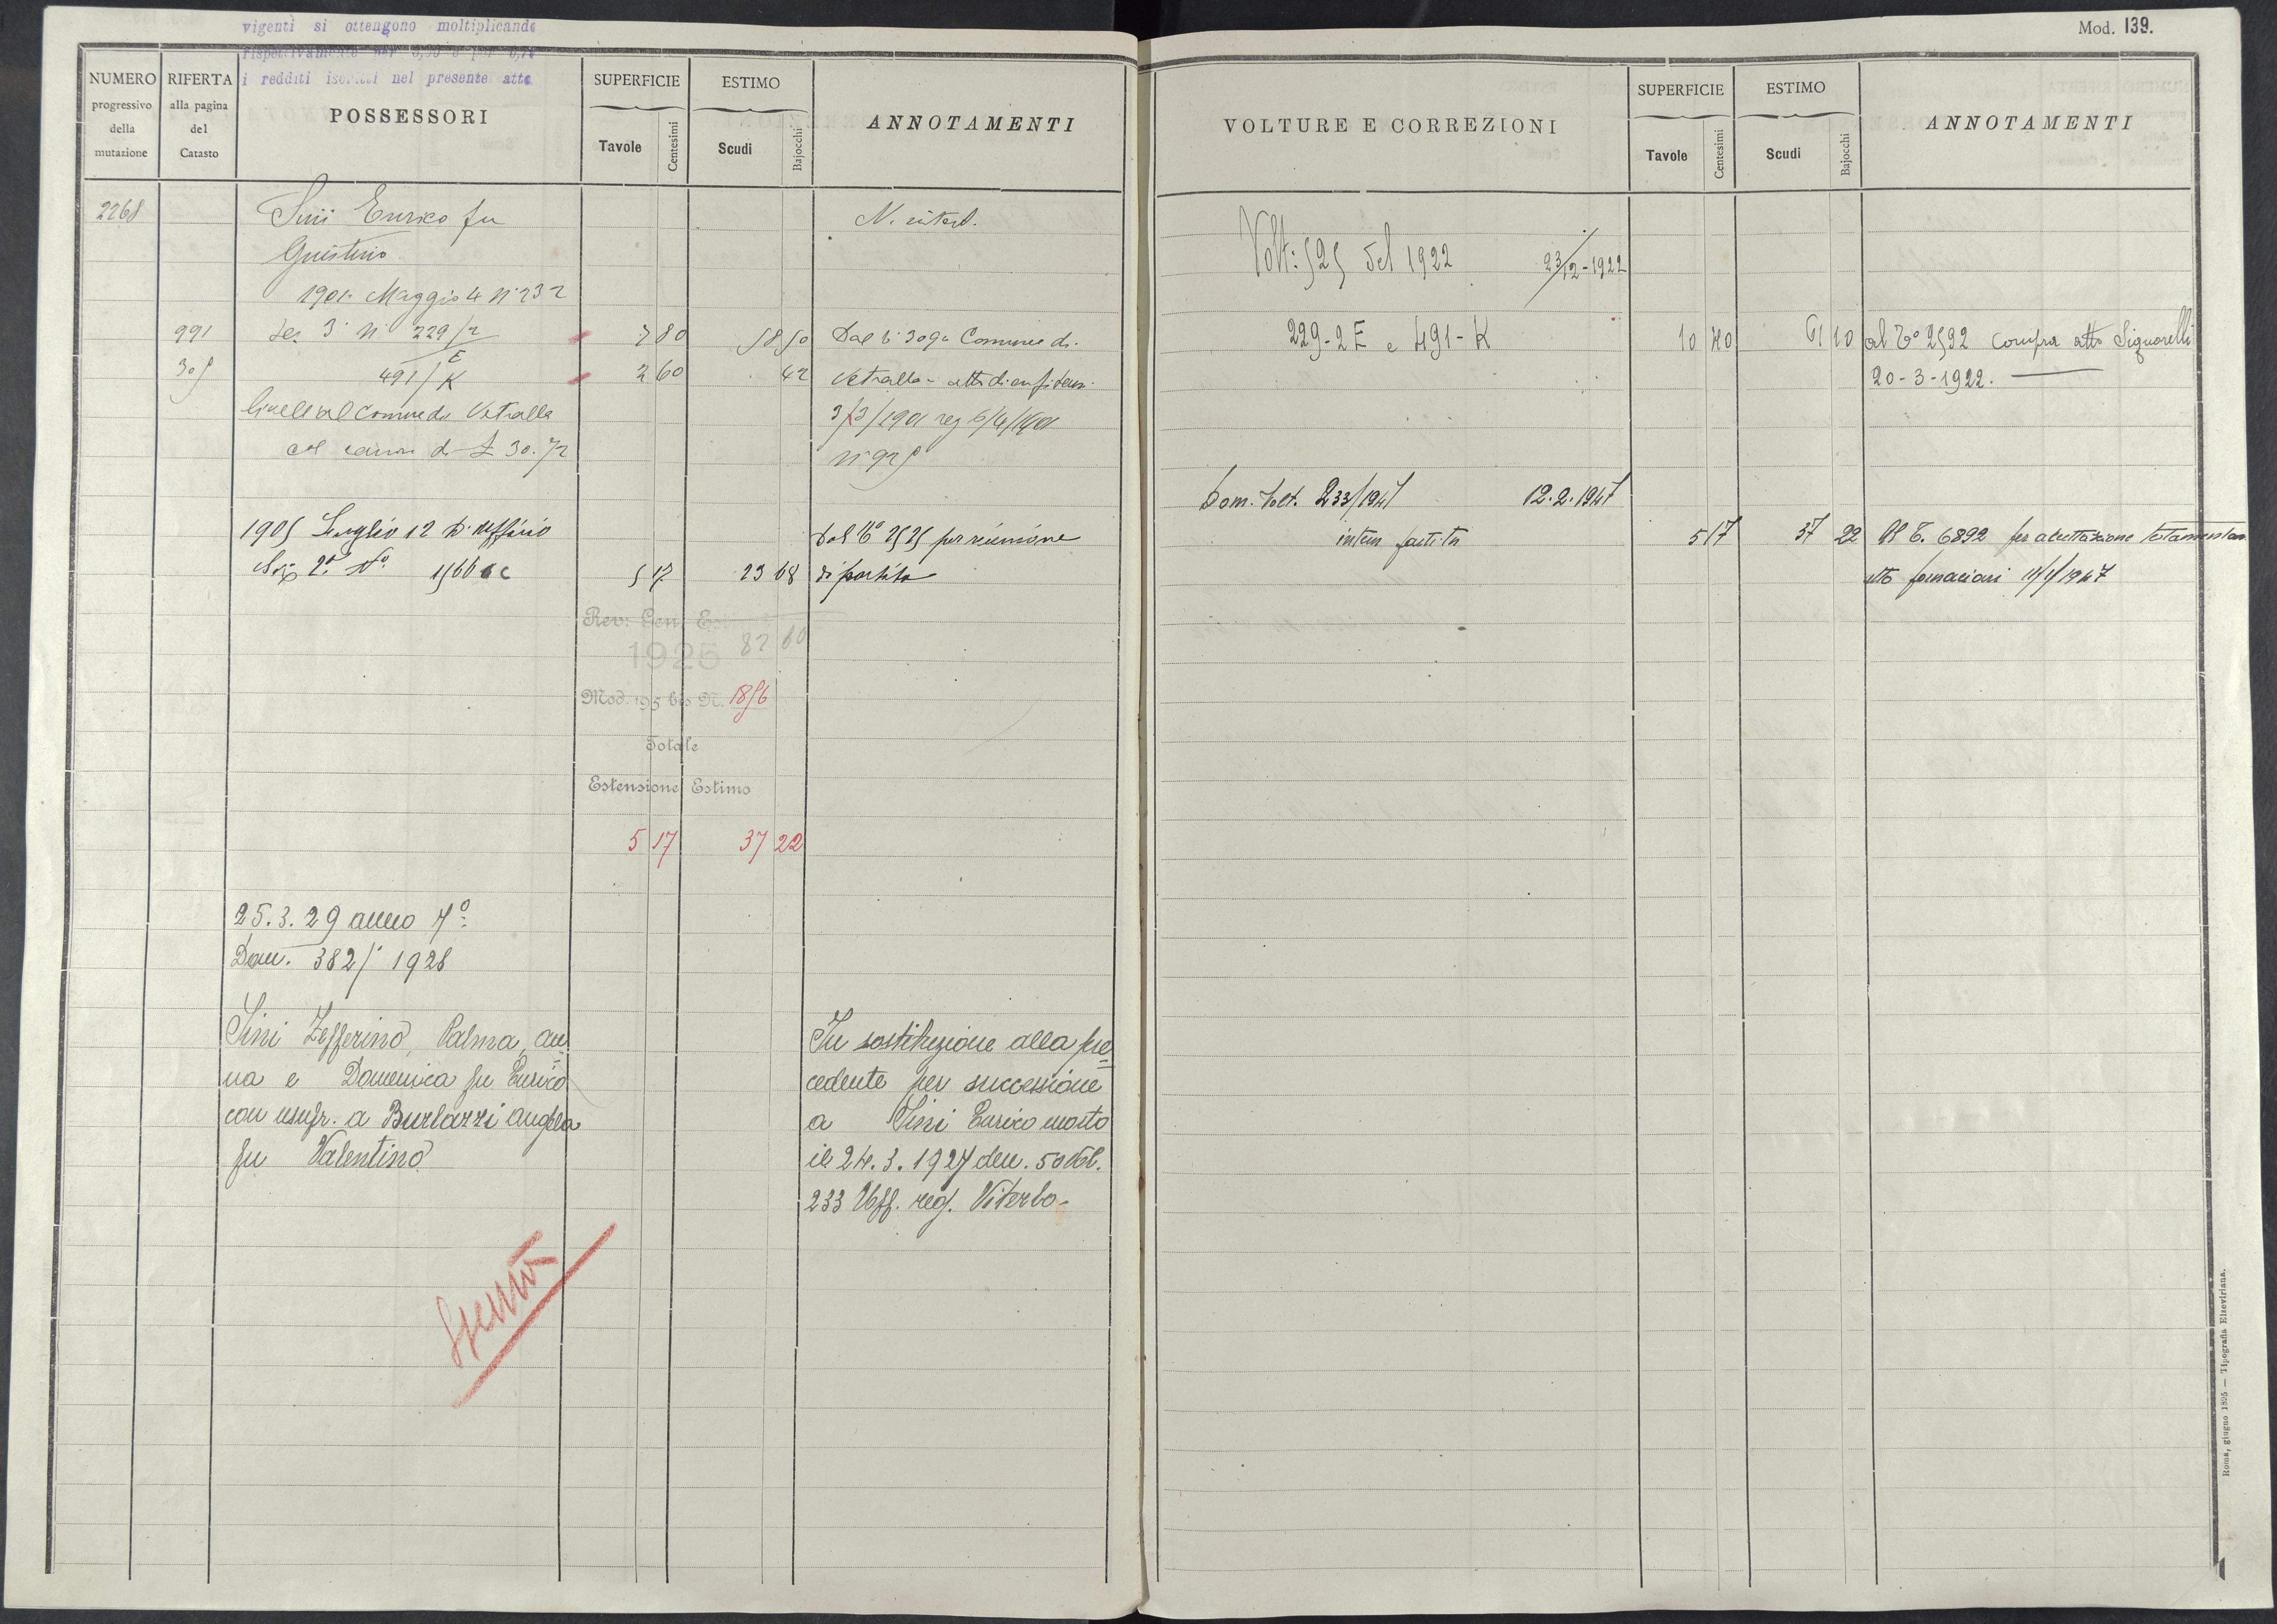 vigenti si ottengono moltiplicando
i redditi iscritti nel presente atto
NUMERO progressivo della mutazione
RIFERTA alla pagina del Catasto
POSSESSORI
SUPERFICIE
Tavole Centesimi
ESTIMO
Scudi Bajocchi
ANNOTAMENTI
2268
Sini Enrico fu
N. intest.
Giustino
1901 Maggio 4 N° 232
991 Sez 3ª N° 229/2 7 80 58 50 Dal Comune di
E
491/K 2 60 42 Vetralla - atto di enfiteusi
Livell al Comune di Vetralla
3/3/1901 reg 6/4/1901
col canone di £ 30.72
1905 Luglio 12 D'ufficio
Dal N° 2525 per riunione
Sez 2ª N° 5 17 23 68 di partita
Rev. Gen. Es
1925 82 60
Mod. 195 bis N. 1856
Totale
Estensione Estimo
5 17 37 22
25.3.29 anno 7°
Dom. 382/ 1928
Sini Zefferino, Palma, An=
na e Domenica fu Enrico
con usufr. a Burlazzi Angela
fu Valentino
In sostituzione alla pre=
cedente per successione
a Sini Enrico morto
il 24.3.1927 den. 50 Vol.
233 Uff. reg. Viterbo-
Spenta
Mod. 139.
VOLTURE E CORREZIONI
SUPERFICIE
Tavole Centesimi
ESTIMO
Scudi Bajocchi
ANNOTAMENTI
Volt: 525 del 1922 23/12-1922
229-2E e 491-K 10 40 61 10 al T° 2592 compra atto Signorelli
20-3-1922.
Dom. Volt. 233/1947 12.2.1947
intera partita 5 17 37 22 Al T. 6892 per accettazione testamentaria
atto Fornaciari
Roma, giugno 1895 — Tipografia Elzeviriana.